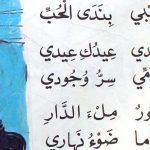 بي بِنَدَى الْحُبِّ
عِيدُكِ عِيدِي
مِّي سِرُّ وُجُودِي
ورٌ مِلْءَ الدَّارِ
ما ضَوْءُ نَهَارِي